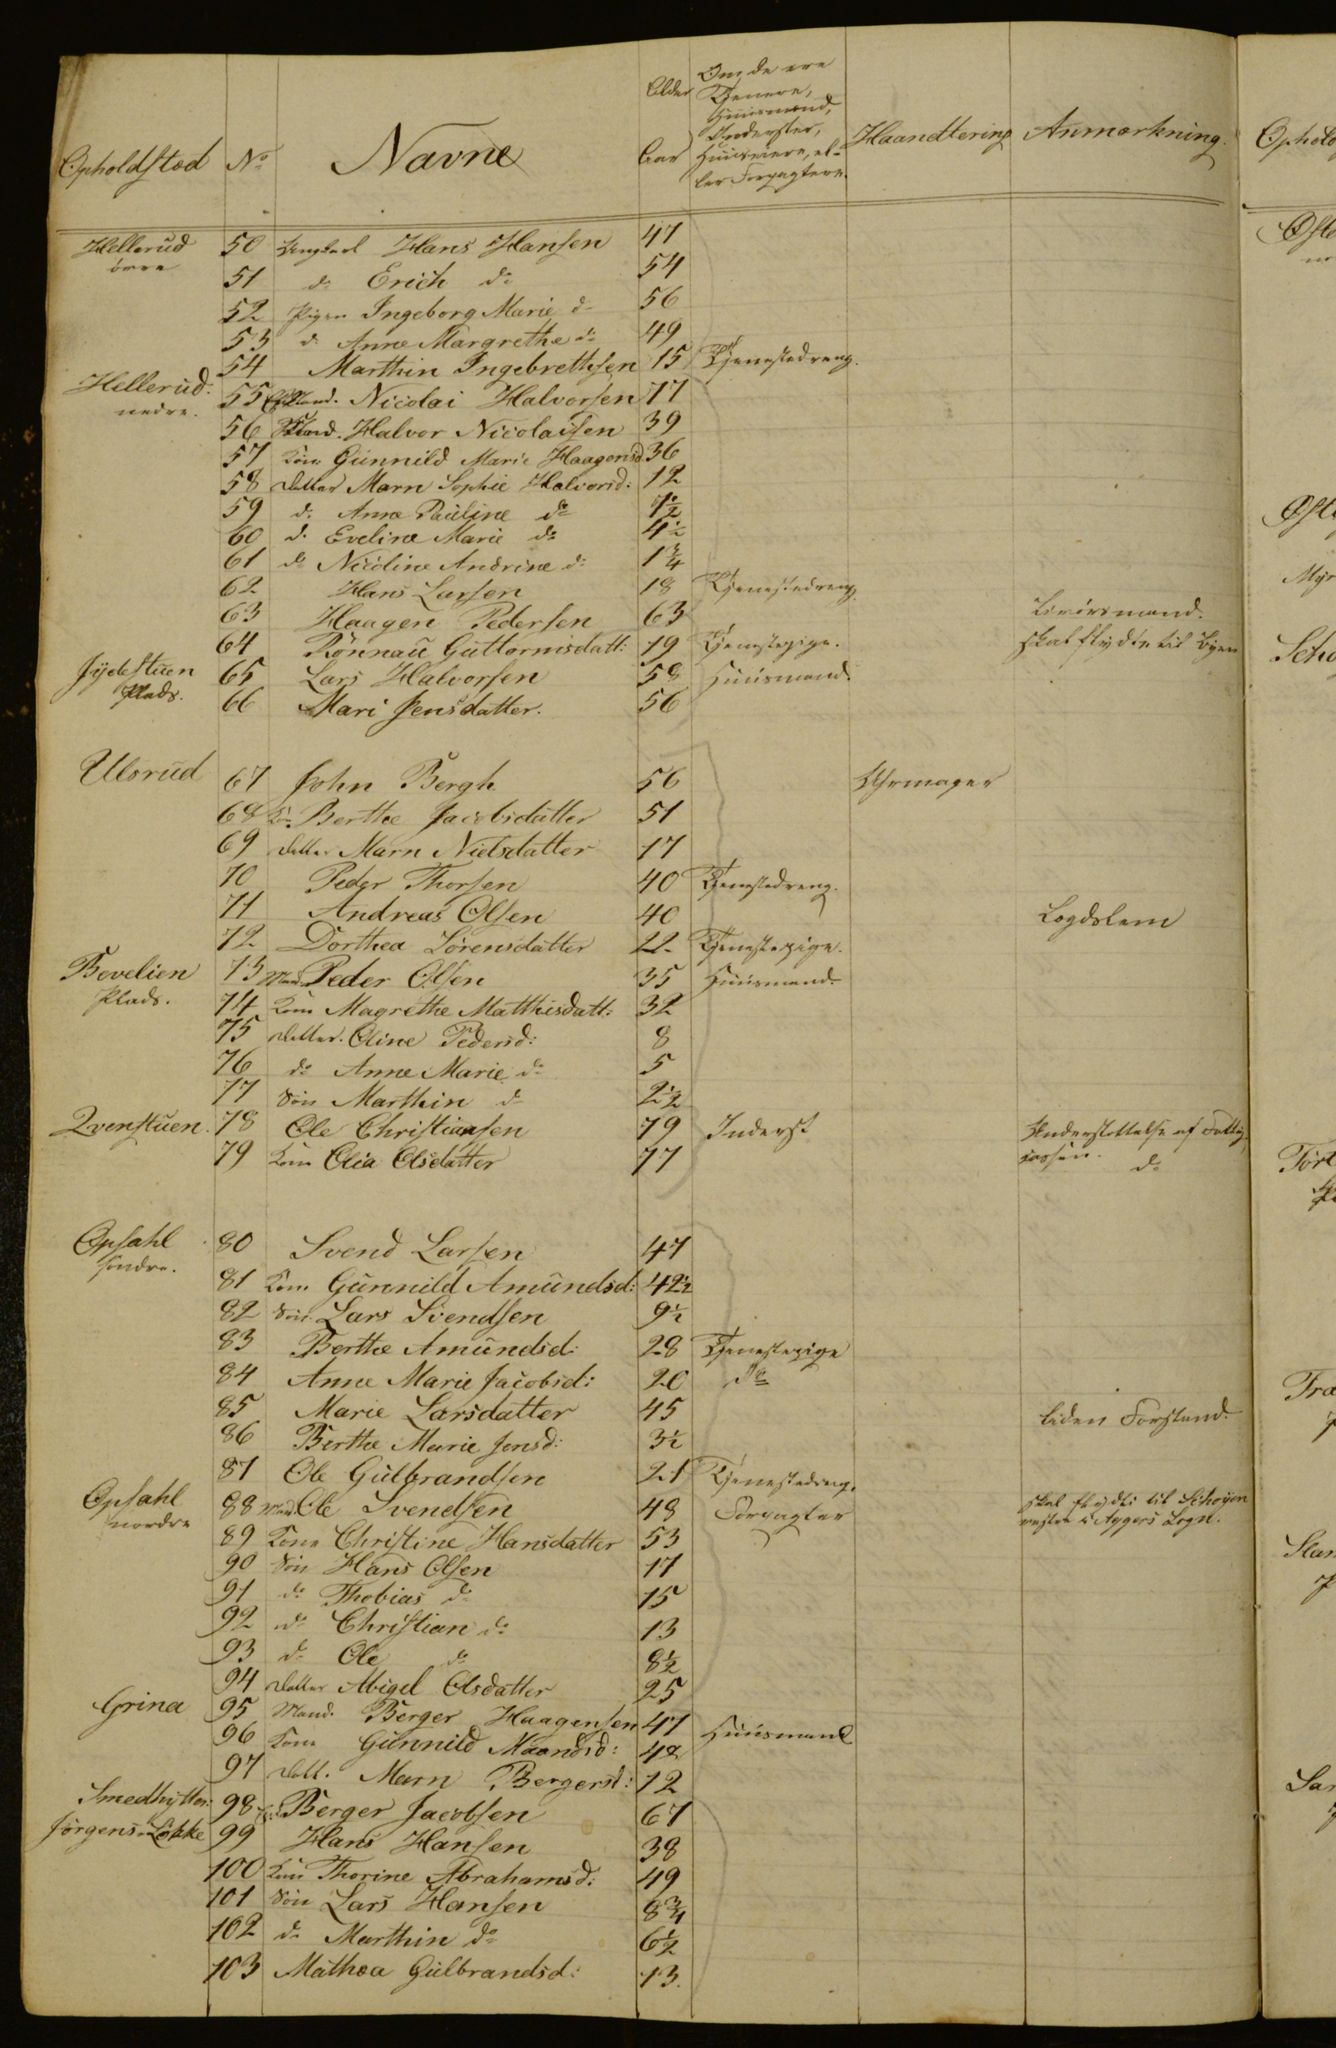 Opholdsted No Navne Alder Aar Om de ere Tjenere, Huusmænd, Inderster, Huuseiere, eller Forpagtere. Haandtering Anmærkning.
Hellerud 50 Ungkarl Hans Hansen 47
övre 51 do Erich do 54
52 Pigen Ingeborg Marie do 56
53 do Anne Margrethe do 49
54 Marthin Ingebrethsen 15 Tjenestedreng.
Hellerud 55 Nicolai Halvorsen 77
nedre. 56 Halvor Nicolaisen 39
57 Kone Gunnild Marie Haagensd 36
58 Datter Marn Sophie Halvorsd: 12
59 do Anne Pauline do
60 do Eveline Marie do 4½
61 do Nicoline Andrine do 1¾
62 Hans Larsen 18 Tjenestedreng
63 Haagen Pedersen 63
64 Rönnau Guttormsdatt: 19 Tjenestepige. skal flytte til Byen
Jydestuen 65 Lars Halvorsen 58 Huusmand.
Plads. 66 Mari Jensdatter. 56
Ulsrud 67 John Bergh 56 Uhrmager
68 Kone Berthe Jacobsdatter 51
69 Datter Marn Nielsdatter 17
70 Peder Thorsen 40 Tjenestedreng.
71 Andreas Olsen 40 Lægdslem
72 Dorthea Sörensdatter 22 Tjenestepige.
Bevelien 73 Mand Peder Olsen 35 Huusmand.
Plads. 74 Kone Magrethe Matthisdatt: 32
75 Datter. Oline Pedersd: 8
76 do Anne Marie do 5
77 Sön Marthin do 2½
Qvenstuen. 78 Ole Christiansen 79 Inderst Understöttelse af Fattig
79 Kone Olia Olsdatter 77 cassen. do
Opsahl 80 Svend Larsen 47
söndre. 81 Kone Gunnild Amundsd: 42½
82 Sön Lars Svendsen 9½
83 Berthe Amundsd: 28 Tjenestepige
84 Anne Marie Jacobsd: 20 do
85 Marie Larsdatter 45 liden Forstand.
86 Berthe Marie Jensd: 3½
87 Ole Gulbrandsen 21 Tjenestedreng.
Opsahl 88 Mand. Ole Svendsen 48 Forpagter skal flytte til Schöyen
nordre 89 Kone Christine Hansdatter 53 vestre i Aggers Sogn.
90 Sön Hans Olsen 17
91 do Thobias do 15
92 do Christian do 13
93 do Ole do 8½
94 Datter Abigel Olsdatter 25
Grina 95 Mand. Berger Haagensen 47 Huusmand
96 Kone Gunnild Maansd: 48
97 Datt. Marn Bergersd: 12
Smedhytten: 98 Berger Jacobsen 67
Jörgens-Lökke 99 Hans Hansen 38
100 Kone Thorine Abrahamsd: 49
101 Sön Lars Hansen 8¾
102 do Marthin do 6½
103 Mathea Gulbrandsd: 13.